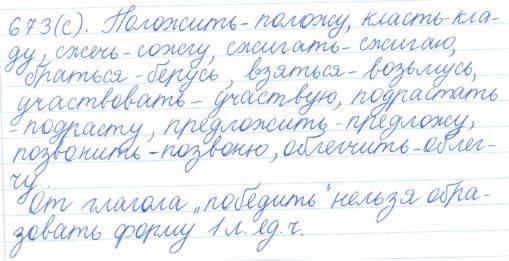 673(с). Положить - положу, класть - кла-
ду, сжечь - сожгу, сжигать - сжигаю,
браться - берусь, взяться - возьмусь,
участвовать - участвую, подрастать
- подрасту, предложить - предложу,
позвонить - позвоню, облегчить - облег-
чу.
От глагола „победить" нельзя обра-
зовать форму 1 л. ед. ч.